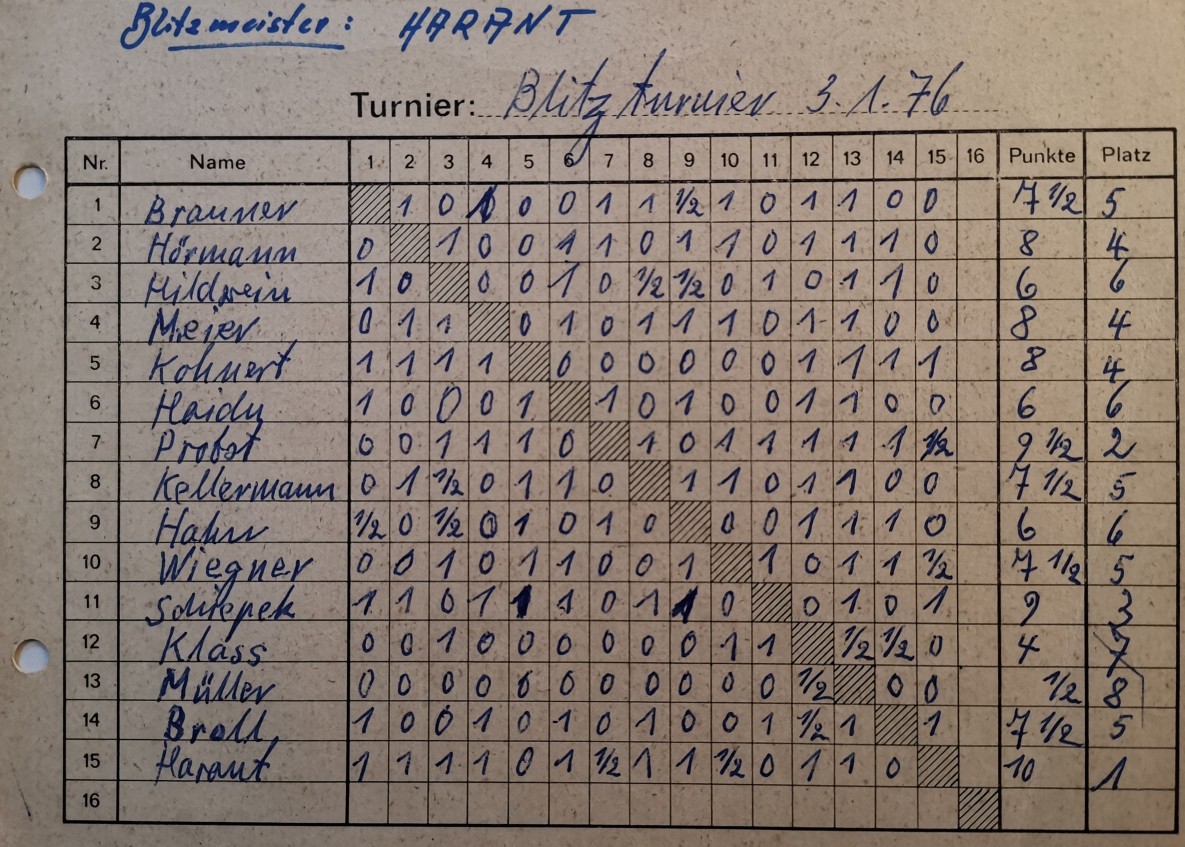 Blitzmeister: HARANT
Turnier: Blitzturnier 3.1.76
Nr. Name 1 2 3 4 5 6 7 8 9 10 11 12 13 14 15 16 Punkte Platz
1 Brauner 1 0 1 0 0 1 1 1/2 1 0 1 1 0 0 7 1/2 5
2 Hörmann 0 1 0 0 1 1 0 1 1 0 1 1 1 0 8 4
3 Hildwein 1 0 0 0 1 0 1/2 1/2 0 1 0 1 1 0 6 6
4 Meier 0 1 1 0 1 0 1 1 1 0 1 1 0 0 8 4
5 Kohnert 1 1 1 1 0 0 0 0 0 0 1 1 1 1 8 4
6 Haidu 1 0 0 0 1 1 0 1 0 0 1 1 0 0 6 6
7 Probst 0 0 1 1 1 0 1 0 1 1 1 1 1 1/2 9 1/2 2
8 Kellermann 0 1 1/2 0 1 1 0 1 1 0 1 1 0 0 7 1/2 5
9 Hahn 1/2 0 1/2 0 1 0 1 0 0 0 1 1 1 0 6 6
10 Wiegner 0 0 1 0 1 1 0 0 1 1 0 1 1 1/2 7 1/2 5
11 Schiepek 1 1 0 1 1 1 0 1 1 0 0 1 0 1 9 3
12 Klass 0 0 1 0 0 0 0 0 0 1 1 1/2 1/2 0 4 7
13 Müller 0 0 0 0 0 0 0 0 0 0 0 1/2 0 0 1/2 8
14 Broll 1 0 0 1 0 1 0 1 0 0 1 1/2 1 1 7 1/2 5
15 Harant 1 1 1 1 0 1 1/2 1 1 1/2 0 1 1 0 10 1
16